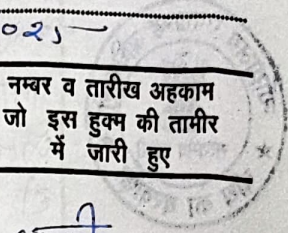 025
नम्बर व तारीख अहकाम
जो इस हुक्म की तामीर
में जारी हुए